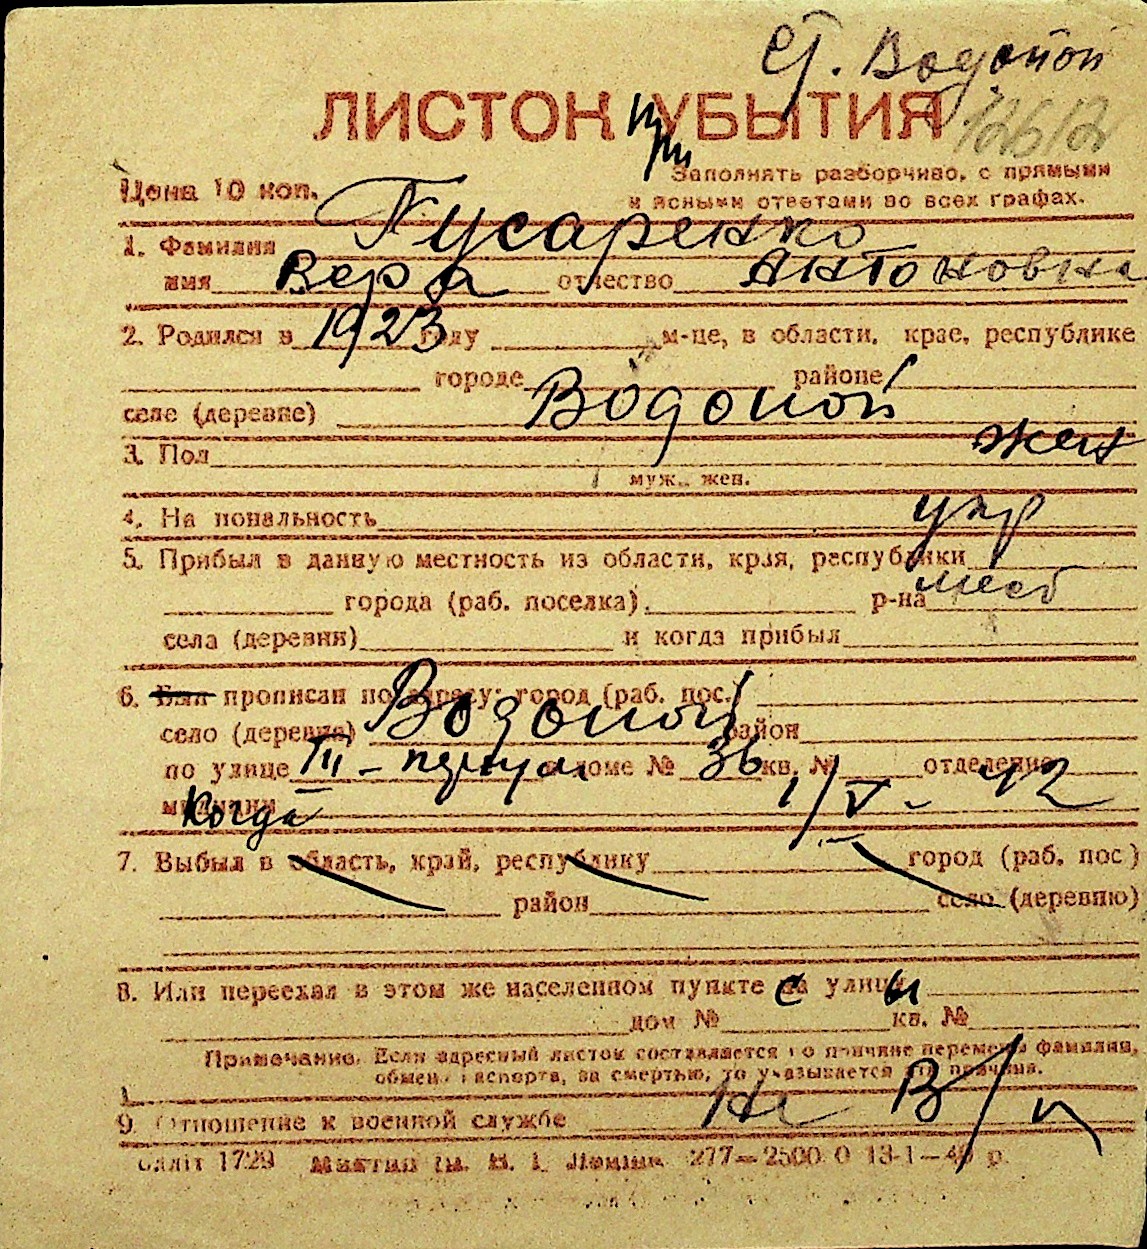 ст. Водопой
ЛИСТОК при УБЫТИЯ
Цена 10 коп.
Заполнять разборчиво, с прямыми
и ясными ответами во всех графах.
1. Фамилия Гусаренко
имя Вера отчество Антоновна
2. Родился в 1923 году м-це, в области, крае, республике
городе районе
селе (деревне) Водопой
3. Пол жен
муж., жен.
4. На иональность укр
5. Прибыл в данную местность из области, края, республики
города (раб. поселка) р-на мест
села (деревни) и когда прибыл
6. Был прописан по адресу: город (раб. пос.)
село (деревня) Водопой район
по улице III - доме № 36 кв. № отделение
милиции Когда 1/V - 42
7. Выбыл в область, край, республику город (раб. пос)
район село (деревню)
8. Или переехал в этом же населенном пункте с улицы
дом № кв. №
Примечание. Если адресный листок составляется по причине перемены фамилии,
обмена паспорта, за смертью, то указывается эта причина.
9. Отношение к военной службе Не В/
1729 277—2500 0 13-1—40 р.